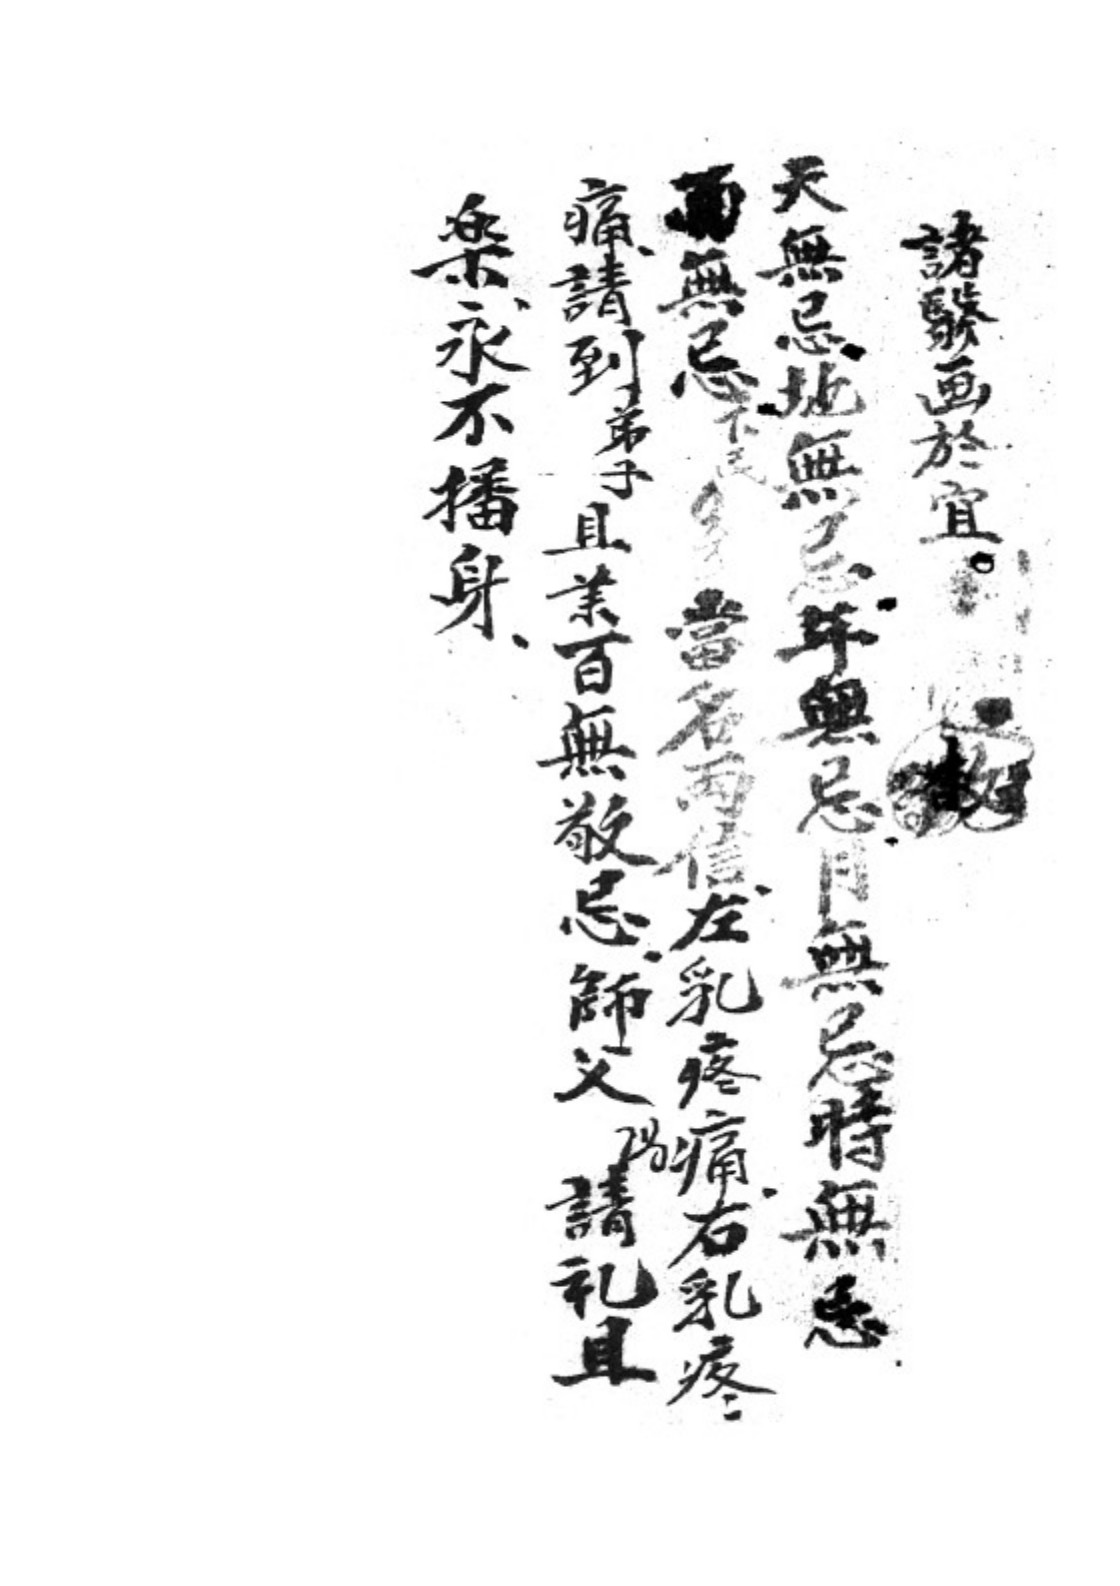 諸發画於宜。
天無忌地無忌年無忌月無忌時無忌
無忌 當 丙信左乳疼痛右乳疼
痛請到弟子且業百無敬忌師父 請礼且
楽永不播身